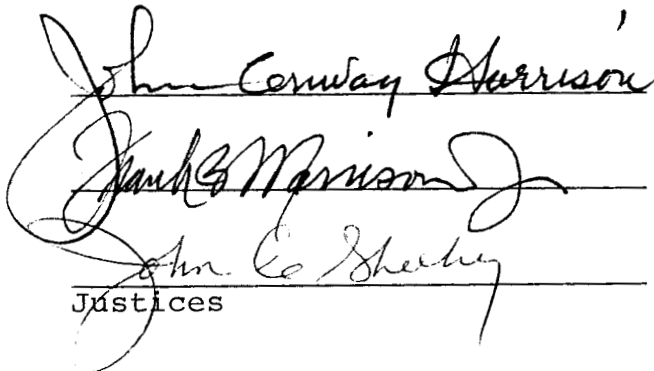 John Conway Harrison
Frank B Morrison Jr
John C Sheehy
Justices